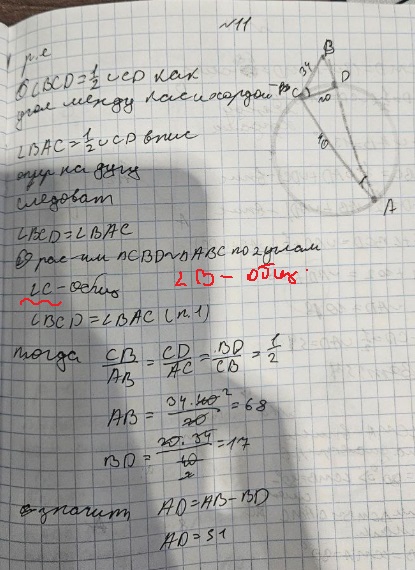 №11
р.е
∠BCD=1/2 ∪CD как
угол между кас и хордой
∠BAC=1/2 ∪CD впис
опир на дугу
следоват
∠BCD=∠BAC
рас-им △CBD∾△ABC по 2 углам
∠C-общ ∠B - общ.
∠BCD=∠BAC (п.1)
тогда CB/AB = CD/AC = BD/CB = 1/2
AB = 34·40/20 = 68
BD = 20·34/40 = 17
значит AD=AB-BD
AD=51
B
34
D
C
20
40
A